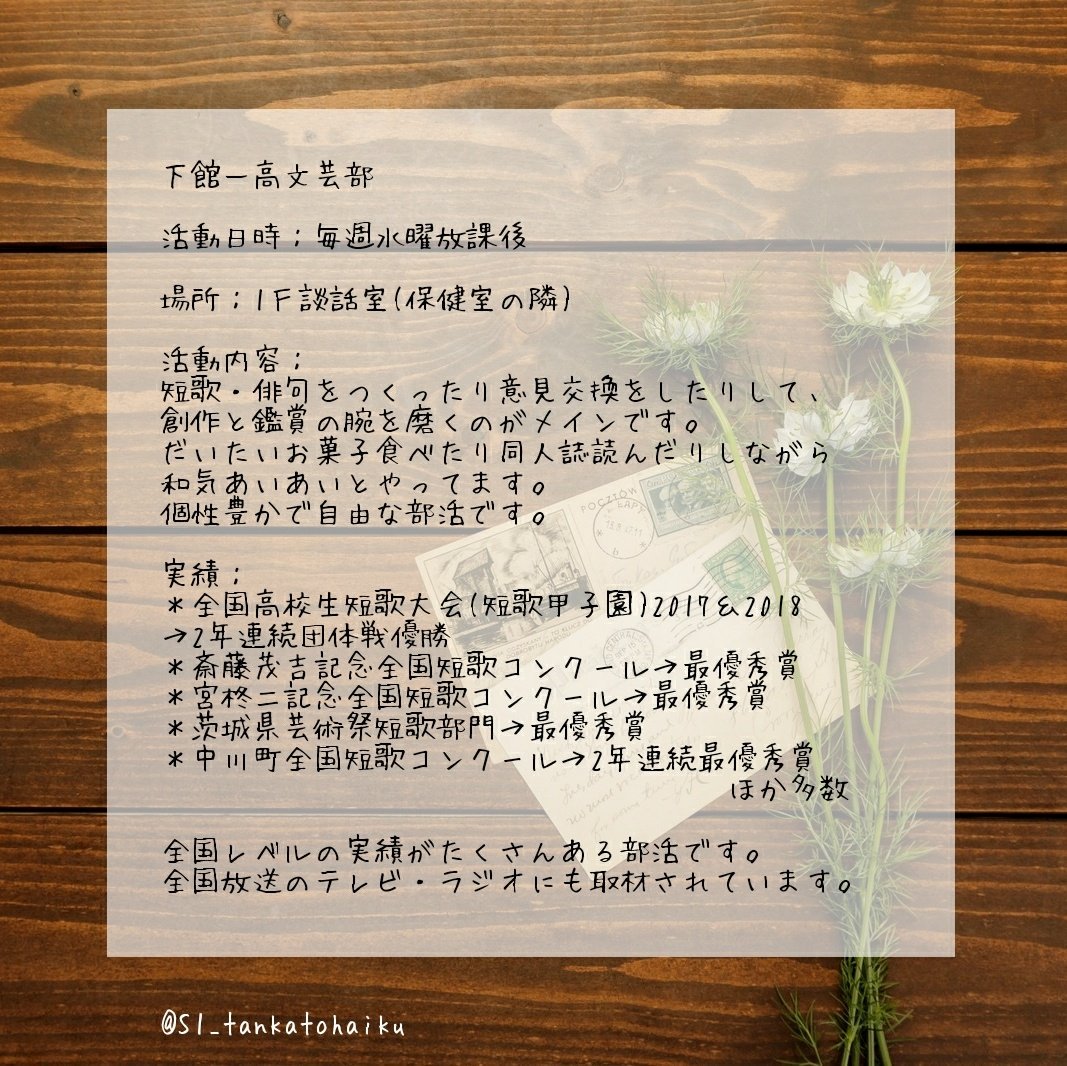 下館一高文芸部
活動日時：毎週水曜放課後
場所：1F談話室(保健室の隣)
活動内容：
短歌・俳句をつくったり意見交換をしたりして、
創作と鑑賞の腕を磨くのがメインです。
だいたいお菓子食べたり同人誌読んだりしながら
和気あいあいとやってます。
個性豊かで自由な部活です。
実績：
＊全国高校生短歌大会(短歌甲子園)2017&2018
→2年連続団体戦優勝
＊斎藤茂吉記念全国短歌コンクール→最優秀賞
＊宮柊二記念全国短歌コンクール→最優秀賞
＊茨城県芸術祭短歌部門→最優秀賞
＊中川町全国短歌コンクール→2年連続最優秀賞
ほか多数
全国レベルの実績がたくさんある部活です。
全国放送のテレビ・ラジオにも取材されています。
@S1_tankatohaiku
POCZTÓW